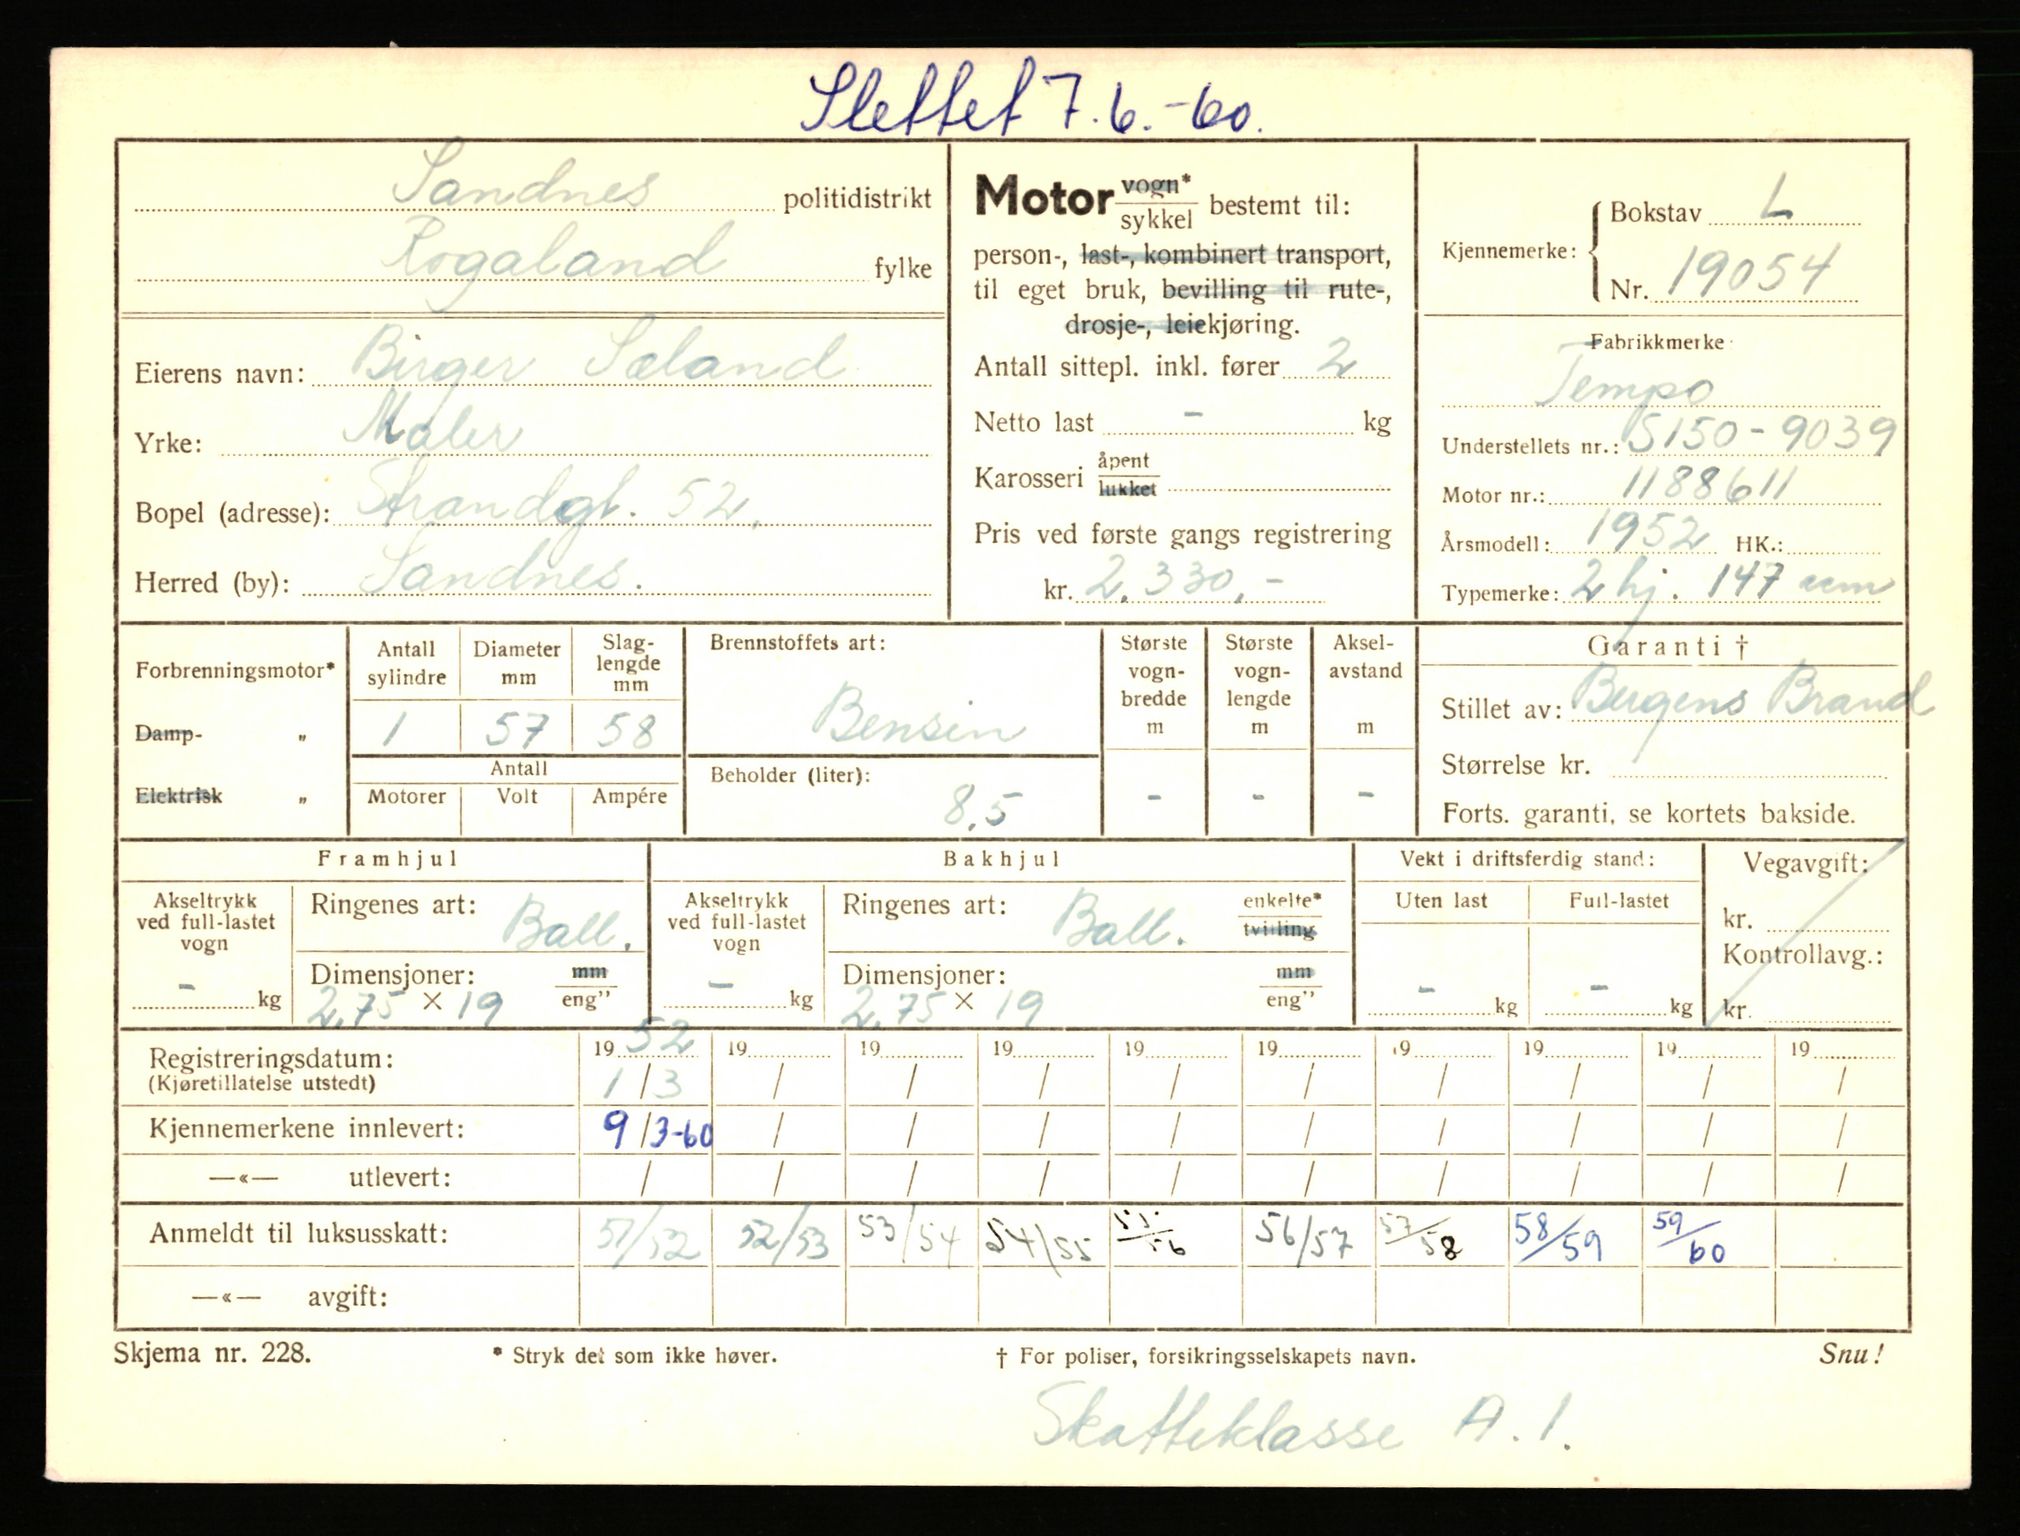 Slettet 7.6.-60.
Sandnes politidistrikt
Rogaland fylke
Eierens navn: Birger Sæland
Yrke: Maler
Bopel (adresse): Strandgt. 52.
Herred (by): Sandnes.
Motor vogn* / sykkel bestemt til:
person-, last-, kombinert transport,
til eget bruk, bevilling til rute-,
drosje-, leiekjøring.
Antall sittepl. inkl. fører 2
Netto last - kg
Karosseri åpent / lukket
Pris ved første gangs registrering
kr. 2.330,-
Kjennemerke: { Bokstav L
Nr. 19054
Fabrikkmerke
Tempo
Understellets nr.: S150-9039
Motor nr.: 1188611
Årsmodell: 1952 HK.:
Typemerke: 2 hj. 147 ccm
Forbrenningsmotor*
Damp- „
Elektrisk „
Antall sylindre Diameter mm Slag-lengde mm
1 57 58
Antall
Motorer Volt Ampére
Brennstoffets art:
Bensin
Beholder (liter):
8,5
Største vogn-bredde m Største vogn-lengde m Aksel-avstand m
- - -
Garanti †
Stillet av: Bergens Brand
Størrelse kr.
Forts. garanti, se kortets bakside.
Framhjul
Akseltrykk ved full-lastet vogn
- kg
Ringenes art: Ball.
Dimensjoner: mm / eng”
2,75 × 19
Bakhjul
Akseltrykk ved full-lastet vogn
- kg
Ringenes art: Ball. enkelte* / tvilling
Dimensjoner: mm / eng”
2,75 × 19
Vekt i driftsferdig stand:
Uten last Full-lastet
- kg - kg
Vegavgift:
kr.
Kontrollavg.:
kr.
Registreringsdatum: 1952 19 19 19 19 19 19 19 19 19
(Kjøretillatelse utstedt) 1/3 / / / / / / / / /
Kjennemerkene innlevert: 9/3-60 / / / / / / / / /
—«— utlevert: / / / / / / / / / /
Anmeldt til luksusskatt: 51/52 52/53 53/54 54/55 55/56 56/57 57/58 58/59 59/60
—«— avgift:
Skjema nr. 228. * Stryk det som ikke høver. † For poliser, forsikringsselskapets navn. Snu!
Skatteklasse A.1.